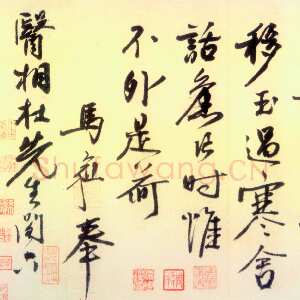 移玉過寒舍
話舊片时惟
不外是荷
馬 奉
醫相杜先生閣下
Shufawang.CN